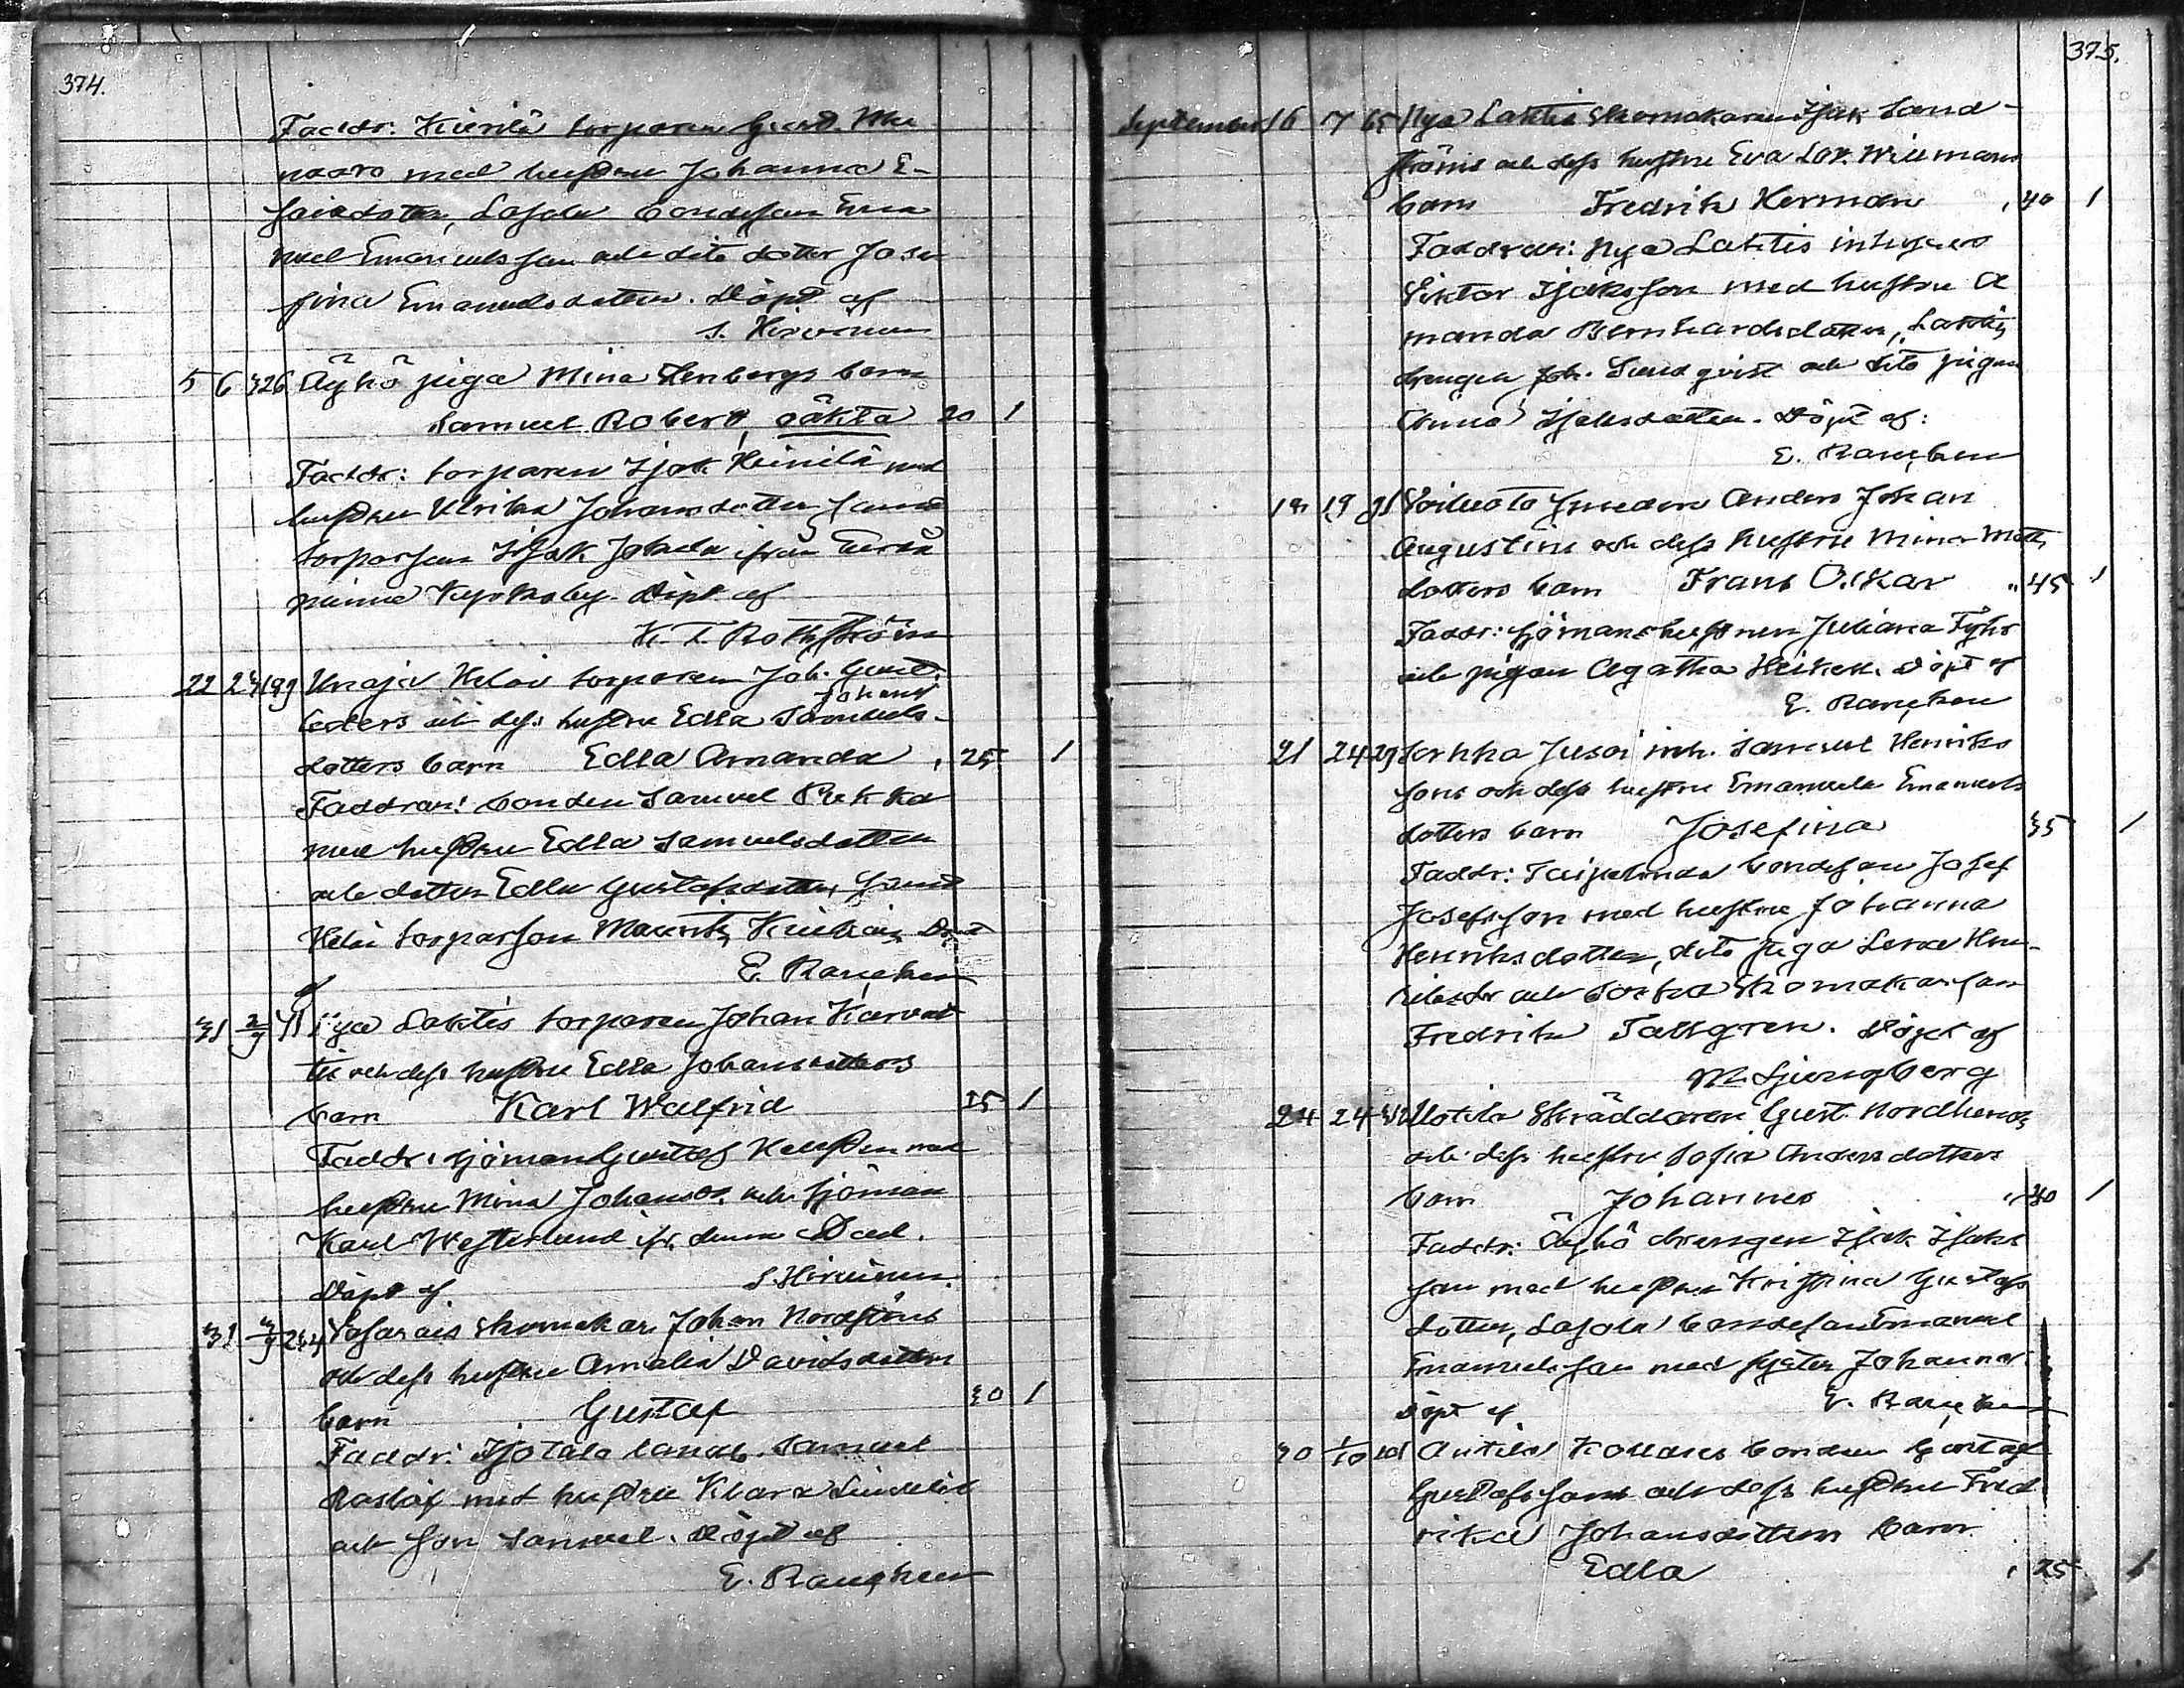 374.
Faddr: Kierilä torparen Gust.
naara med hustru Johanna E-
saiadotter, Lasola bondeson Ema
nuel Emanuelsson och dito dotter Jose
fina Emanuelsdotter. Döpt af
S. Hirvinen
5 6 326 Äyhö piga Mina Stenbergs barn
Samuel Robert, oäkta 20 1
Faddr: torparen Isak Heinilä med
hustru Ulrika Johansdotter, samt
torparson Isak Jokela ifrån
Kyrkoby. Döpt af
K. T. Rothström
22 23 189 Unaja Heloi torparen Joh. Gust.
Johans
och dess hustru Edla Samuels-
dotters barn Edla Amanda , 25 1
Faddrar: bonden Samuel Pekka
med hustru Edla Samuelsdotter
och dotter Edla Gustafsdotter, samt
Heloi torparson Mauritz Döpt
af E. Rancken
31 2/9 41 Nya Laktis torparen Johan Karvat
ti och dess hustru Edla Johansdotters
barn Karl Walfrid 25 1
Faddr: sjöman Gustaf med
hustru Mina Johansdr. och sjöman
Karl Westerlund ifr. denna Stad.
Döpt af S. Hirvinen.
31 3/9 244 skomakar. Johan Nordströms
och dess hustru Amalia Davidsdotters
barn Gustaf 30 1
Faddr: Isotalo landb. Samuel
Rostöf med hustru Klara
och son Samuel. Döpt af
E. Rancken
375.
September 16 17 65 Nya Laktis Skomakaren Isak Sand-
ströms och dess hustru Eva Lov. Willmans
barn Fredrik Herman , 40 1
Faddrar: Nya Laktis inhyses
Viktor Isaksson med hustru A
manda Bernhardsdotter, Laktis
drengen Joh. Sundqvist och dito pigan
Anna Isaksdotter. Döpt af:
E. Rancken
18 19 91 Voiluoto smeden Anders Johan
Augustins och dess hustru Mina Matts
dotters barn Frans Oskar " 45 1
Faddr: sjömanshustrun Juliana Fyhr
och pigan Agatha Heikek. Döpt af
E. Rancken
21 24 29 Sorkka Jusoi inh. Samuel Henriks
sons och dess hustru Emanuela Emanuels
dotters barn Josefina 35 1
Faddr: Taipalmaa bondeson Josef
Josefsson med hustru Johanna
Henriksdotter, dito piga Lena Hen-
riksdr och Sorkka Skomakarson
Fredrik Tallgren. Döpt af
M. Ljungberg
24 24 Uotila Skräddaren Gust. Nordlunds
och dess hustru Sofia Andersdotters
barn Johannes " 30 1
Faddr: Äyhö drengen Isak Isaks
son med hustru Kristina Gustafs
dotter, Lasola bondeson Emanuel
Emanuelsson med syster Johanna.
Döpt af E. Rancken
30 1/10 Anttila Kollares bonden Gustaf
Gustafssons och dess hustru Fred
rika Johansdotters barn
Edla , 25 1